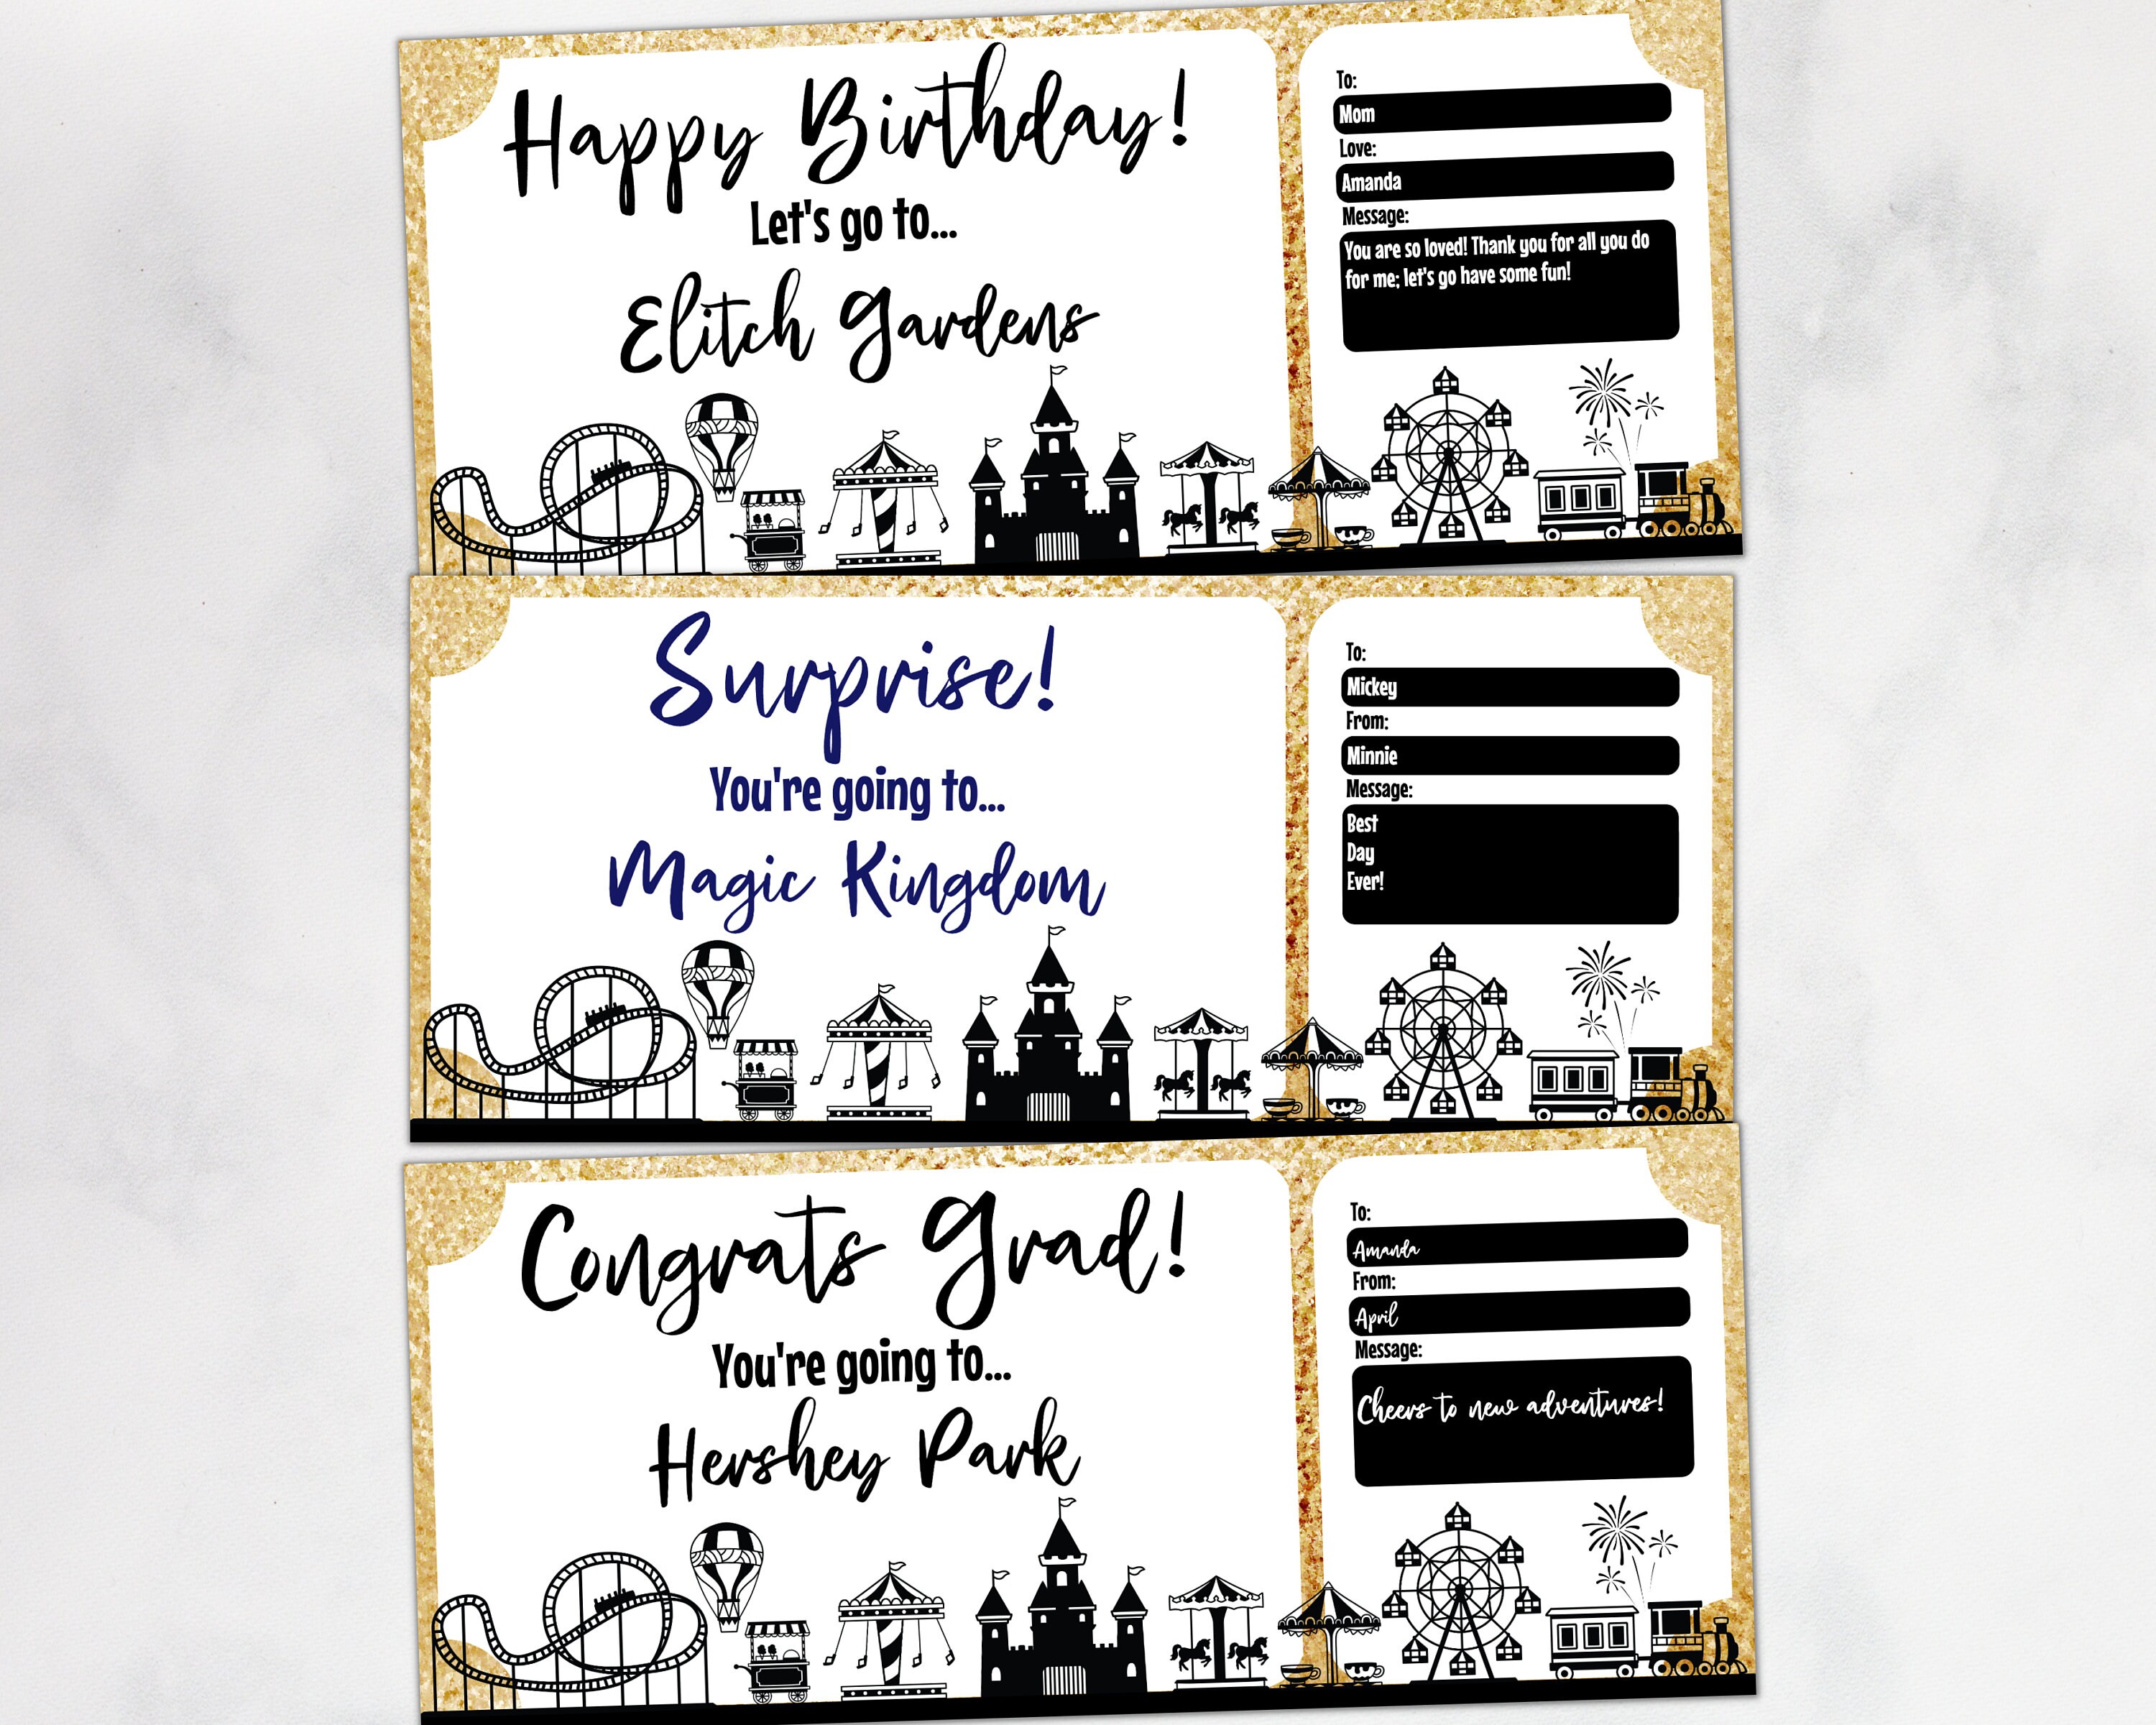 Happy Birthday!
Let's go to...
Elitch Gardens
To:
Mom
Love:
Amanda
Message:
You are so loved! Thank you for all you do
for me; let's go have some fun!
Surprise!
You're going to...
Magic Kingdom
To:
Mickey
From:
Minnie
Message:
Best
Day
Ever!
Congrats Grad!
You're going to...
Hershey Park
To:
Amanda
From:
April
Message:
Cheers to new adventures!